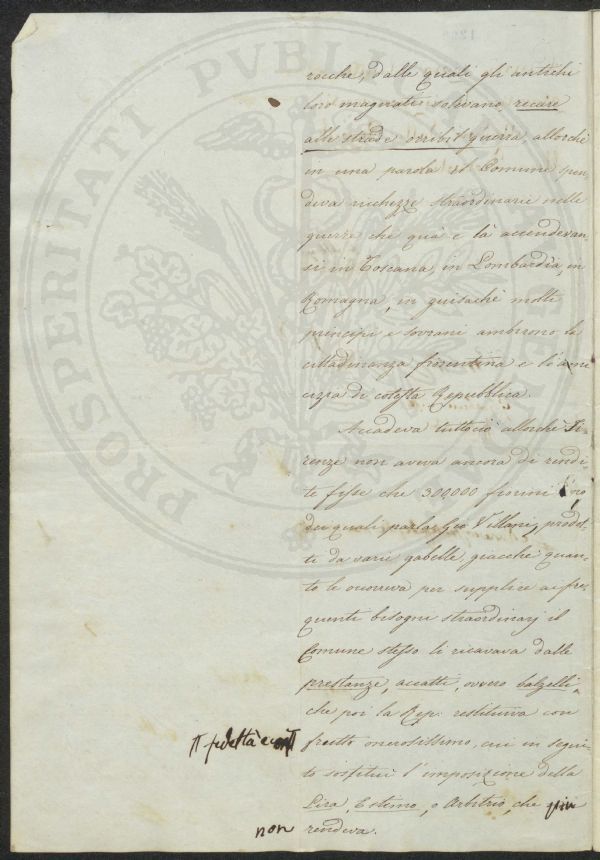 PROSPERITATI PVBLICAE
rocche, dalle quali gli antichi
loro magnati solevano, recare
alle strade orribil guerra, allorchè
in una parola il Comune span-
deva ricchezze straordinarie nelle
guerre che quà e là accendevan-
si in Toscana, in Lombardia, in
Romagna, in guisachè molti
principi e sovrani ambirono la
cittadinanza fiorentina e l'ami-
cizia di cotesta Repubblica.
Accadeva tuttociò allorchè Fi-
renze non aveva ancora di rendi-
te fisse che 300,000 fiorini d'oro
dei quali parla Gio Villani, prodot-
ti da varie gabelle, giacchè quan-
to le occorreva per supplire ai fre-
quenti bisogni straordinarj il
Comune stesso li ricavava dalle
prestanze, accatti, ovvero balzelli,
che poi la Rep. restituiva con
π fedeltà e con π
frutto onerosissimo, cui in segui-
to sostituì l'imposizione della
Lira, Estimo, o Arbitrio, che più
non rendeva.